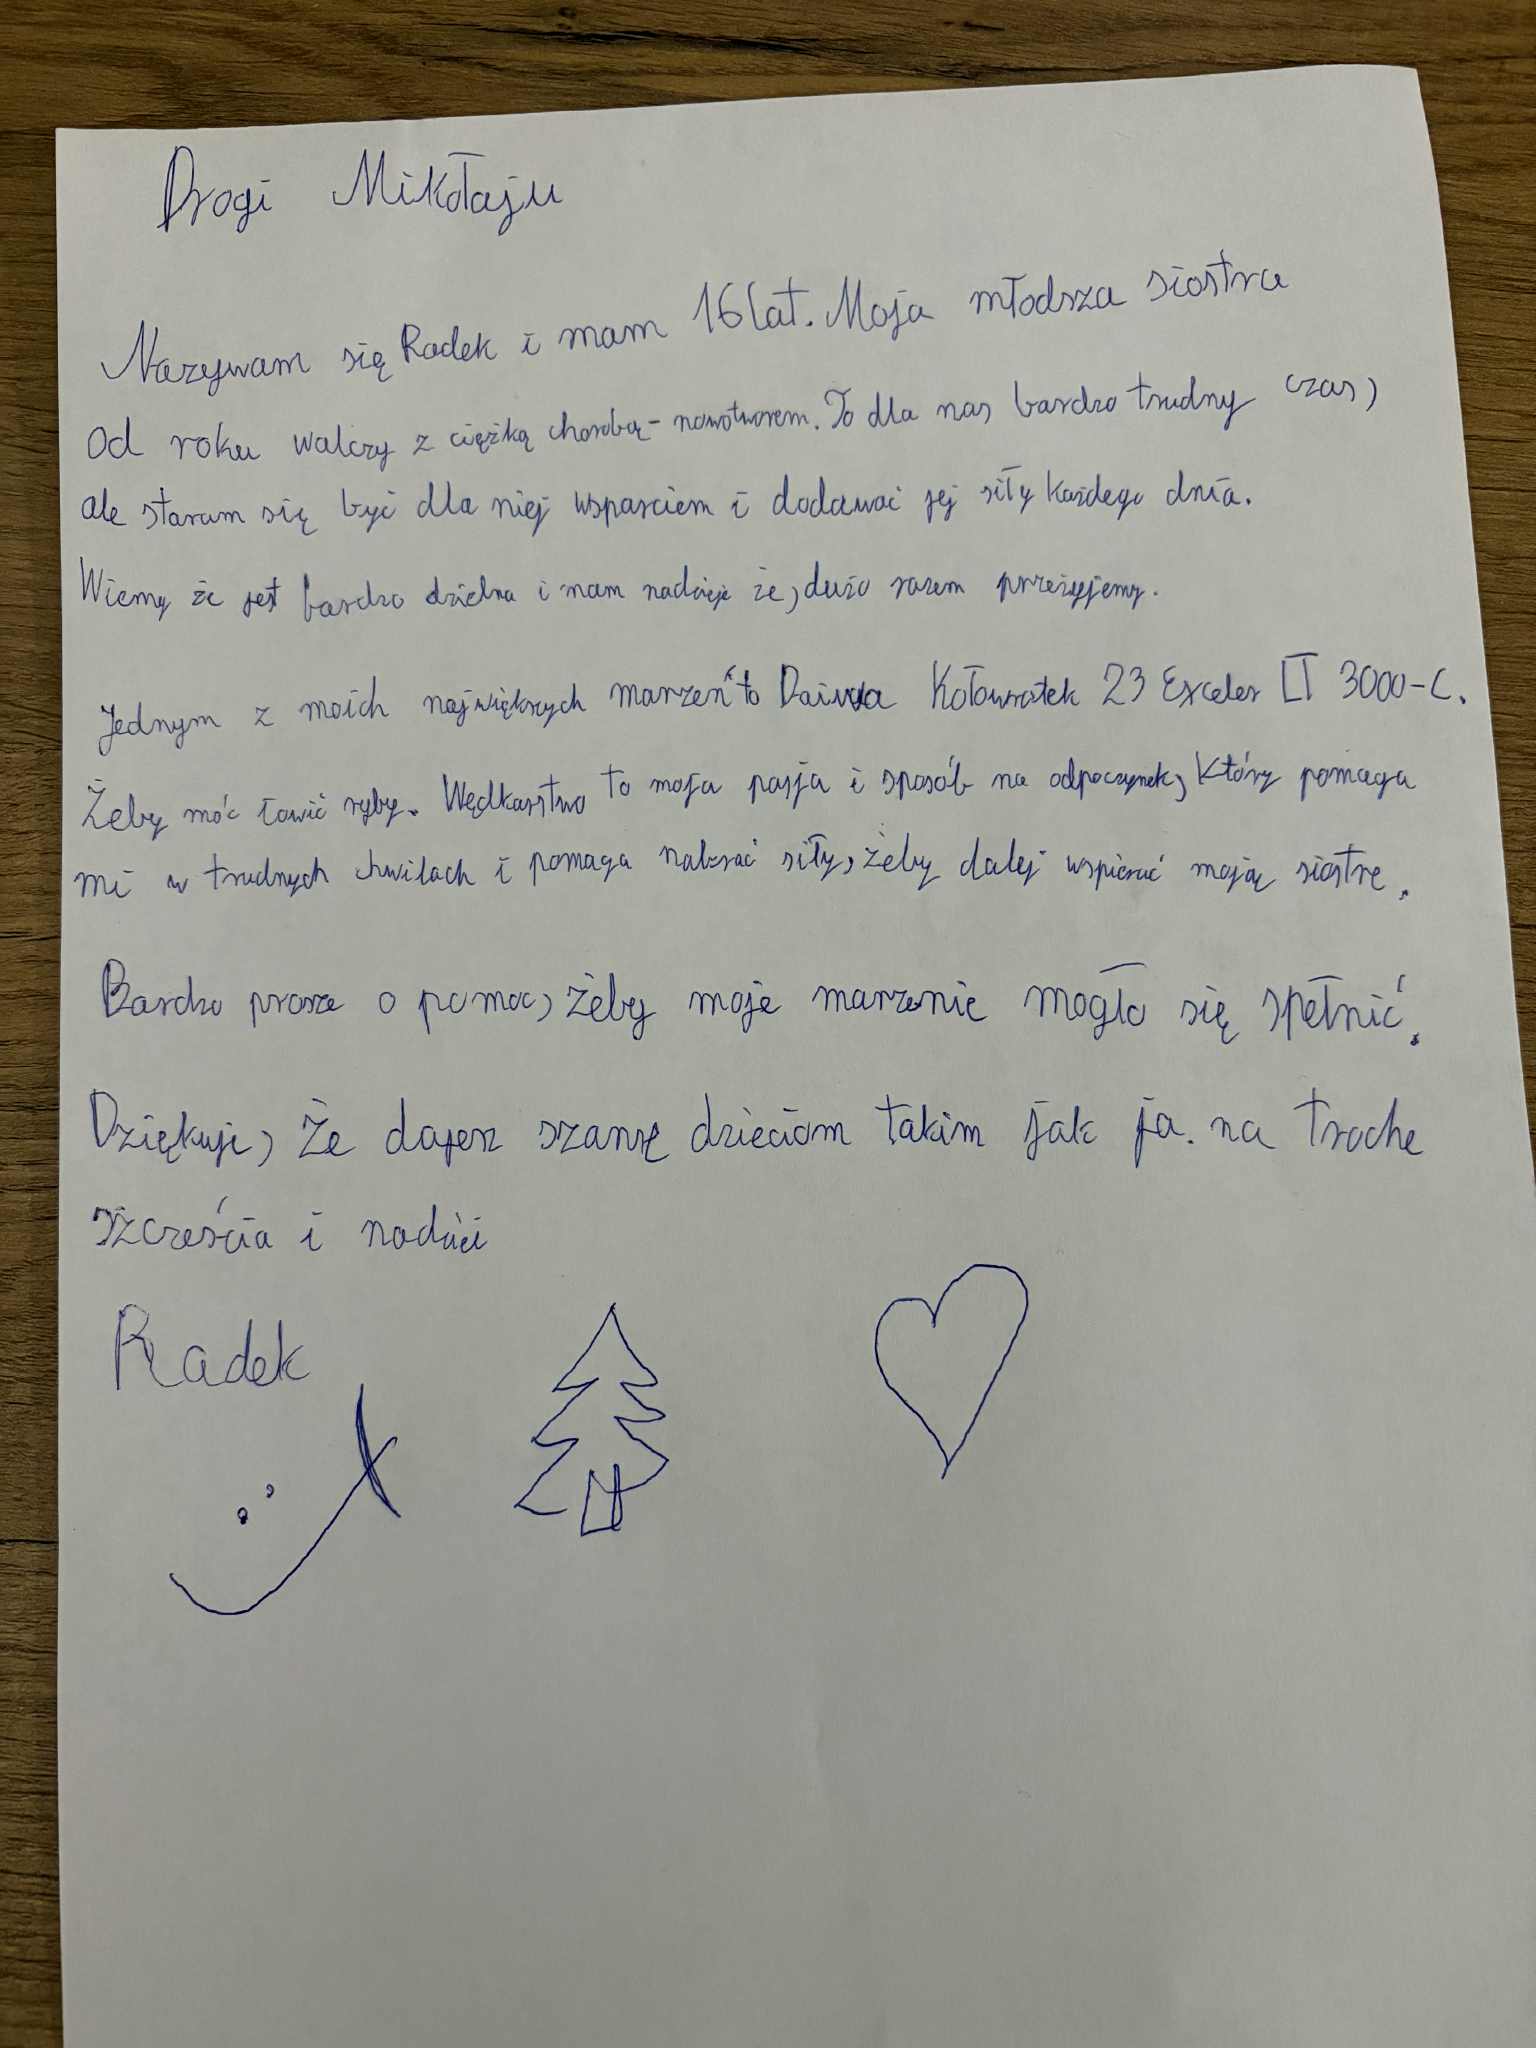 Drogi Mikołaju
Nazywam się Radek i mam 16 lat. Moja młodsza siostra
od roku walczy z ciężką chorobą - nowotworem. To dla nas bardzo trudny czas,
ale staram się być dla niej wsparciem i dodawać jej siły każdego dnia.
Wiemy że jest bardzo dzielna i mam nadzieje że, dużo razem przeżyjemy.
Jednym z moich największych marzeń to Daiwa Kołowrotek 23 Exceler LT 3000-C.
Żeby móc łowić ryby. Wędkarstwo to moja pasja i sposób na odpoczynek, Który pomaga
mi w trudnych chwilach i pomaga nabrać siły, żeby dalej wspierać moją siostrę.
Bardzo prosze o pomoc, żeby moje marzenie mogło się spełnić.
Dziękuje, Że dajesz szansę dzieciom takim jak ja. na troche
szcześcia i nadziei
Radek